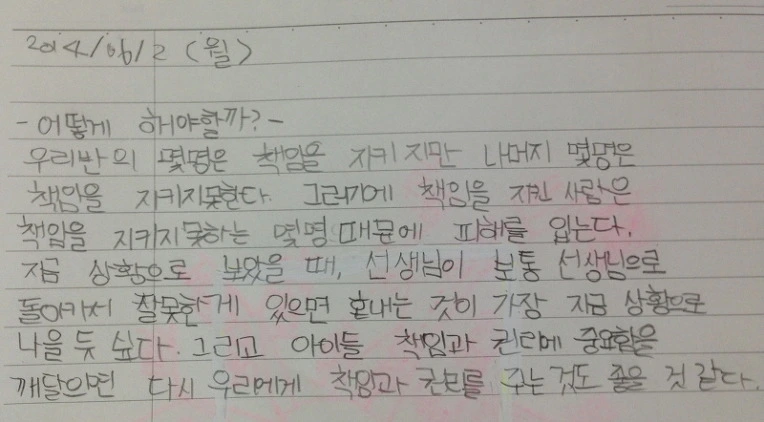 2014/06/2 (월)
-어떻게 해야할까?-
우리반의 몇명은 책임을 지키지만 나머지 몇명은
책임을 지키지못한다. 그러기에 책임을 지킨 사람은
책임을 지키지못하는 몇명때문에 피해를 입는다.
지금 상황으로 보았을 때, 선생님이 보통 선생님으로
돌아가서 잘못한게 있으면 혼내는 것이 가장 지금 상황으로
나을 듯 싶다. 그리고 아이들 책임과 권리에 중요함을
깨달으면 다시 우리에게 책임과 권리를 주는것도 좋을 것 같다.